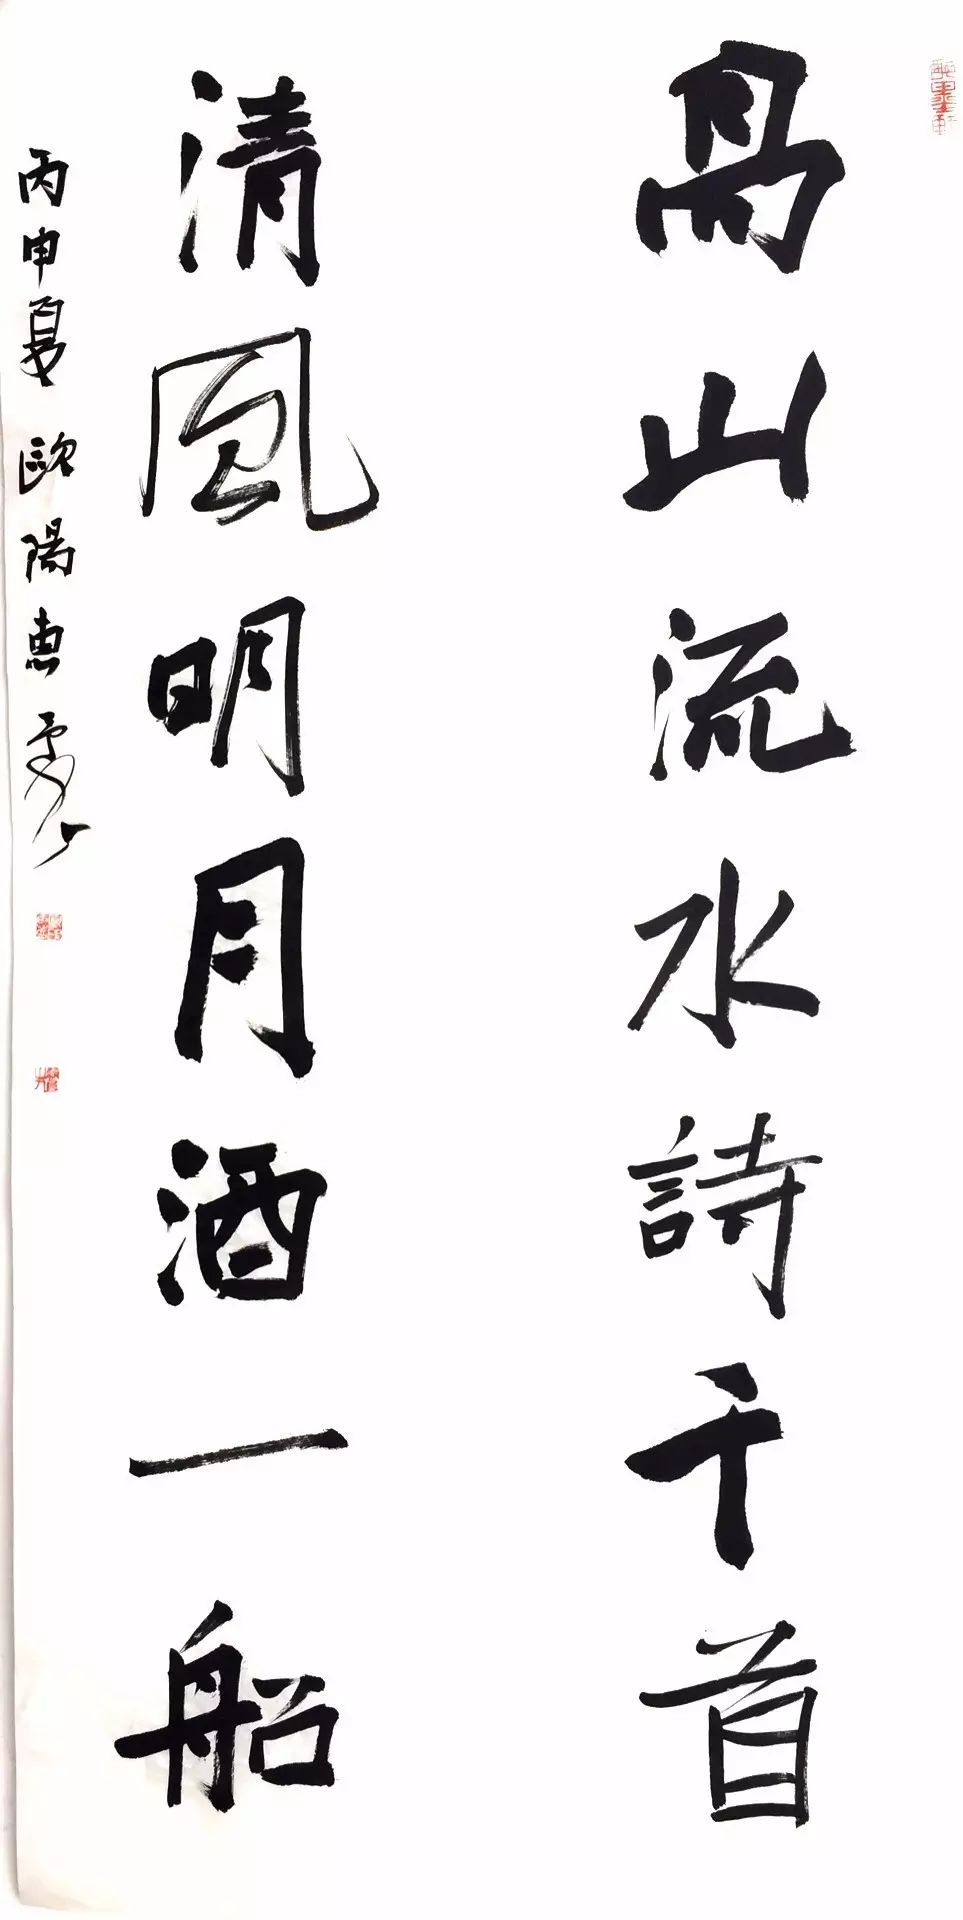 高山流水詩千首
清風明月酒一船
丙申夏 歐陽惠